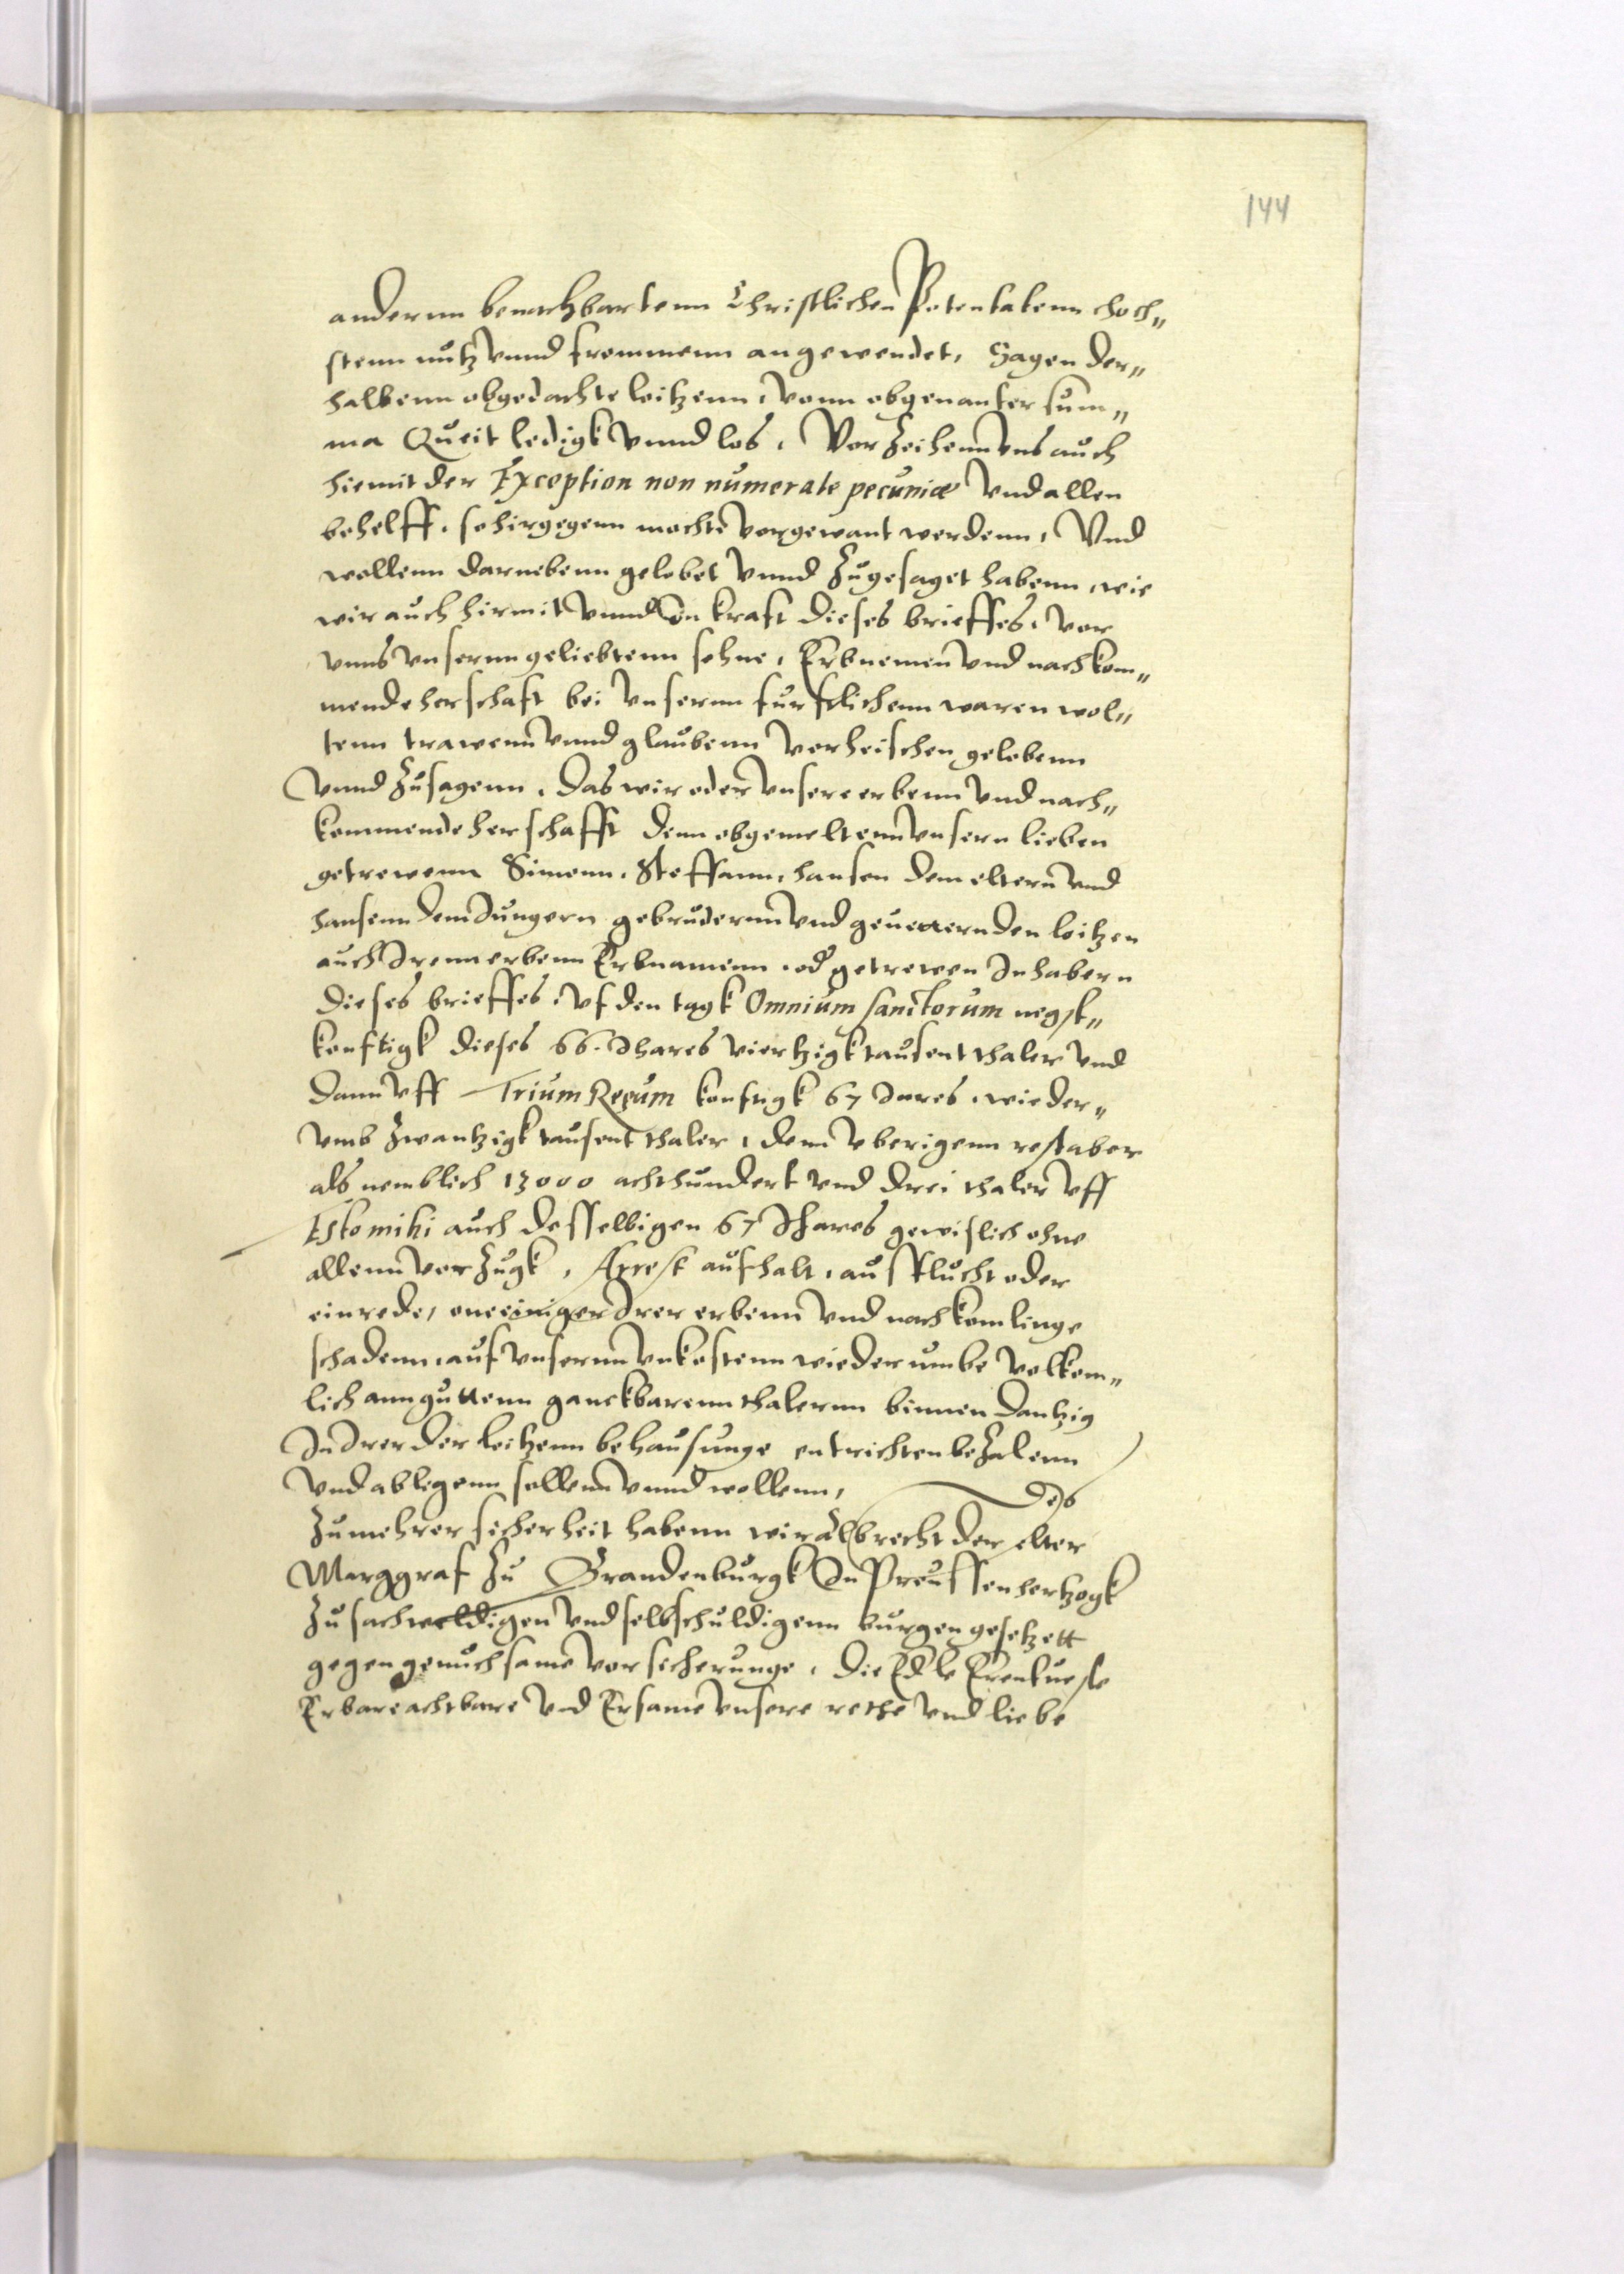 144
andernn benachbartenn Christlichen Potentatenn hoch„
stenn nutz vnnd frommenn angewendet, Sagen der„
halbenn obgedachte loitzenn, vonn obgenanter sum„
ma Queit ledigk vnnd los, Vorzeihenn vns auch
hiemit der Exception non numerate pecuniæ vnd allen
behelff, so hirgegenn mochte vorgewant werdenn, Vnd
wollenn darnebenn gelobet vnnd zugesaget habenn, wie
wir auch hirmit vnnd In kraft dieses brieffes, vor
vnns vnsernn geliebtenn sohne, Erbnemen vnd nachkom„
mende herschaft bei vnsernn furstlichenn waren wol„
tenn trawenn vnnd glaubenn vorheischen gelobenn
vnnd zusagenn, das wir oder vnsere erbenn vnd nach„
kommende herschafft denn obgemeltenn vnsern lieben
getrewenn Simonn, Steffann, hansen dem eltern vnd
hansenn dem Jungern gebrudernn vnd geuettern den loitzen
auch Irenn erbenn Erbnamenn, od getrewen Inhabern
dieses brieffes, vf den tagk Omnium sanctorum negst„
konftigk dieses 66. Jhares viertzigk tausent thaler vnd
dann vff Trium Regum konftigk 67 Jares, wieder„
vmb zwantzigk tausent thaler, denn vberigenn rest aber
als nemblich 13000 achthundert vnd drei thaler vff
Esto mihi auch desselbigen 67 Jhares gewislich ohne
allenn vorzugk, Arrest aufhalt, ausflucht oder
einrede, one einiger Irer erbenn vnd nachkomlinge
schadenn, auf vnsernn vnkostenn wiederumbe volkom„
lich ann guttenn ganckbarenn thalernn binnen Dantzig
In Irer der loitzenn behausunge entrichten bezalenn
vnd ablegenn sollenn vnnd wollenn, Des
zu mehrer sicherheit habenn wir Albrecht der elter
Marggraf zu Brandenburgk In Preussen hertzogk
zu sachweldigen vnd selbschuldigenn burgen gesetzett
gegen genuchsame vorsicherunge, die Edle Erentueste
Erbare achtbare vnd Ersame vnsere rethe vnd liebe